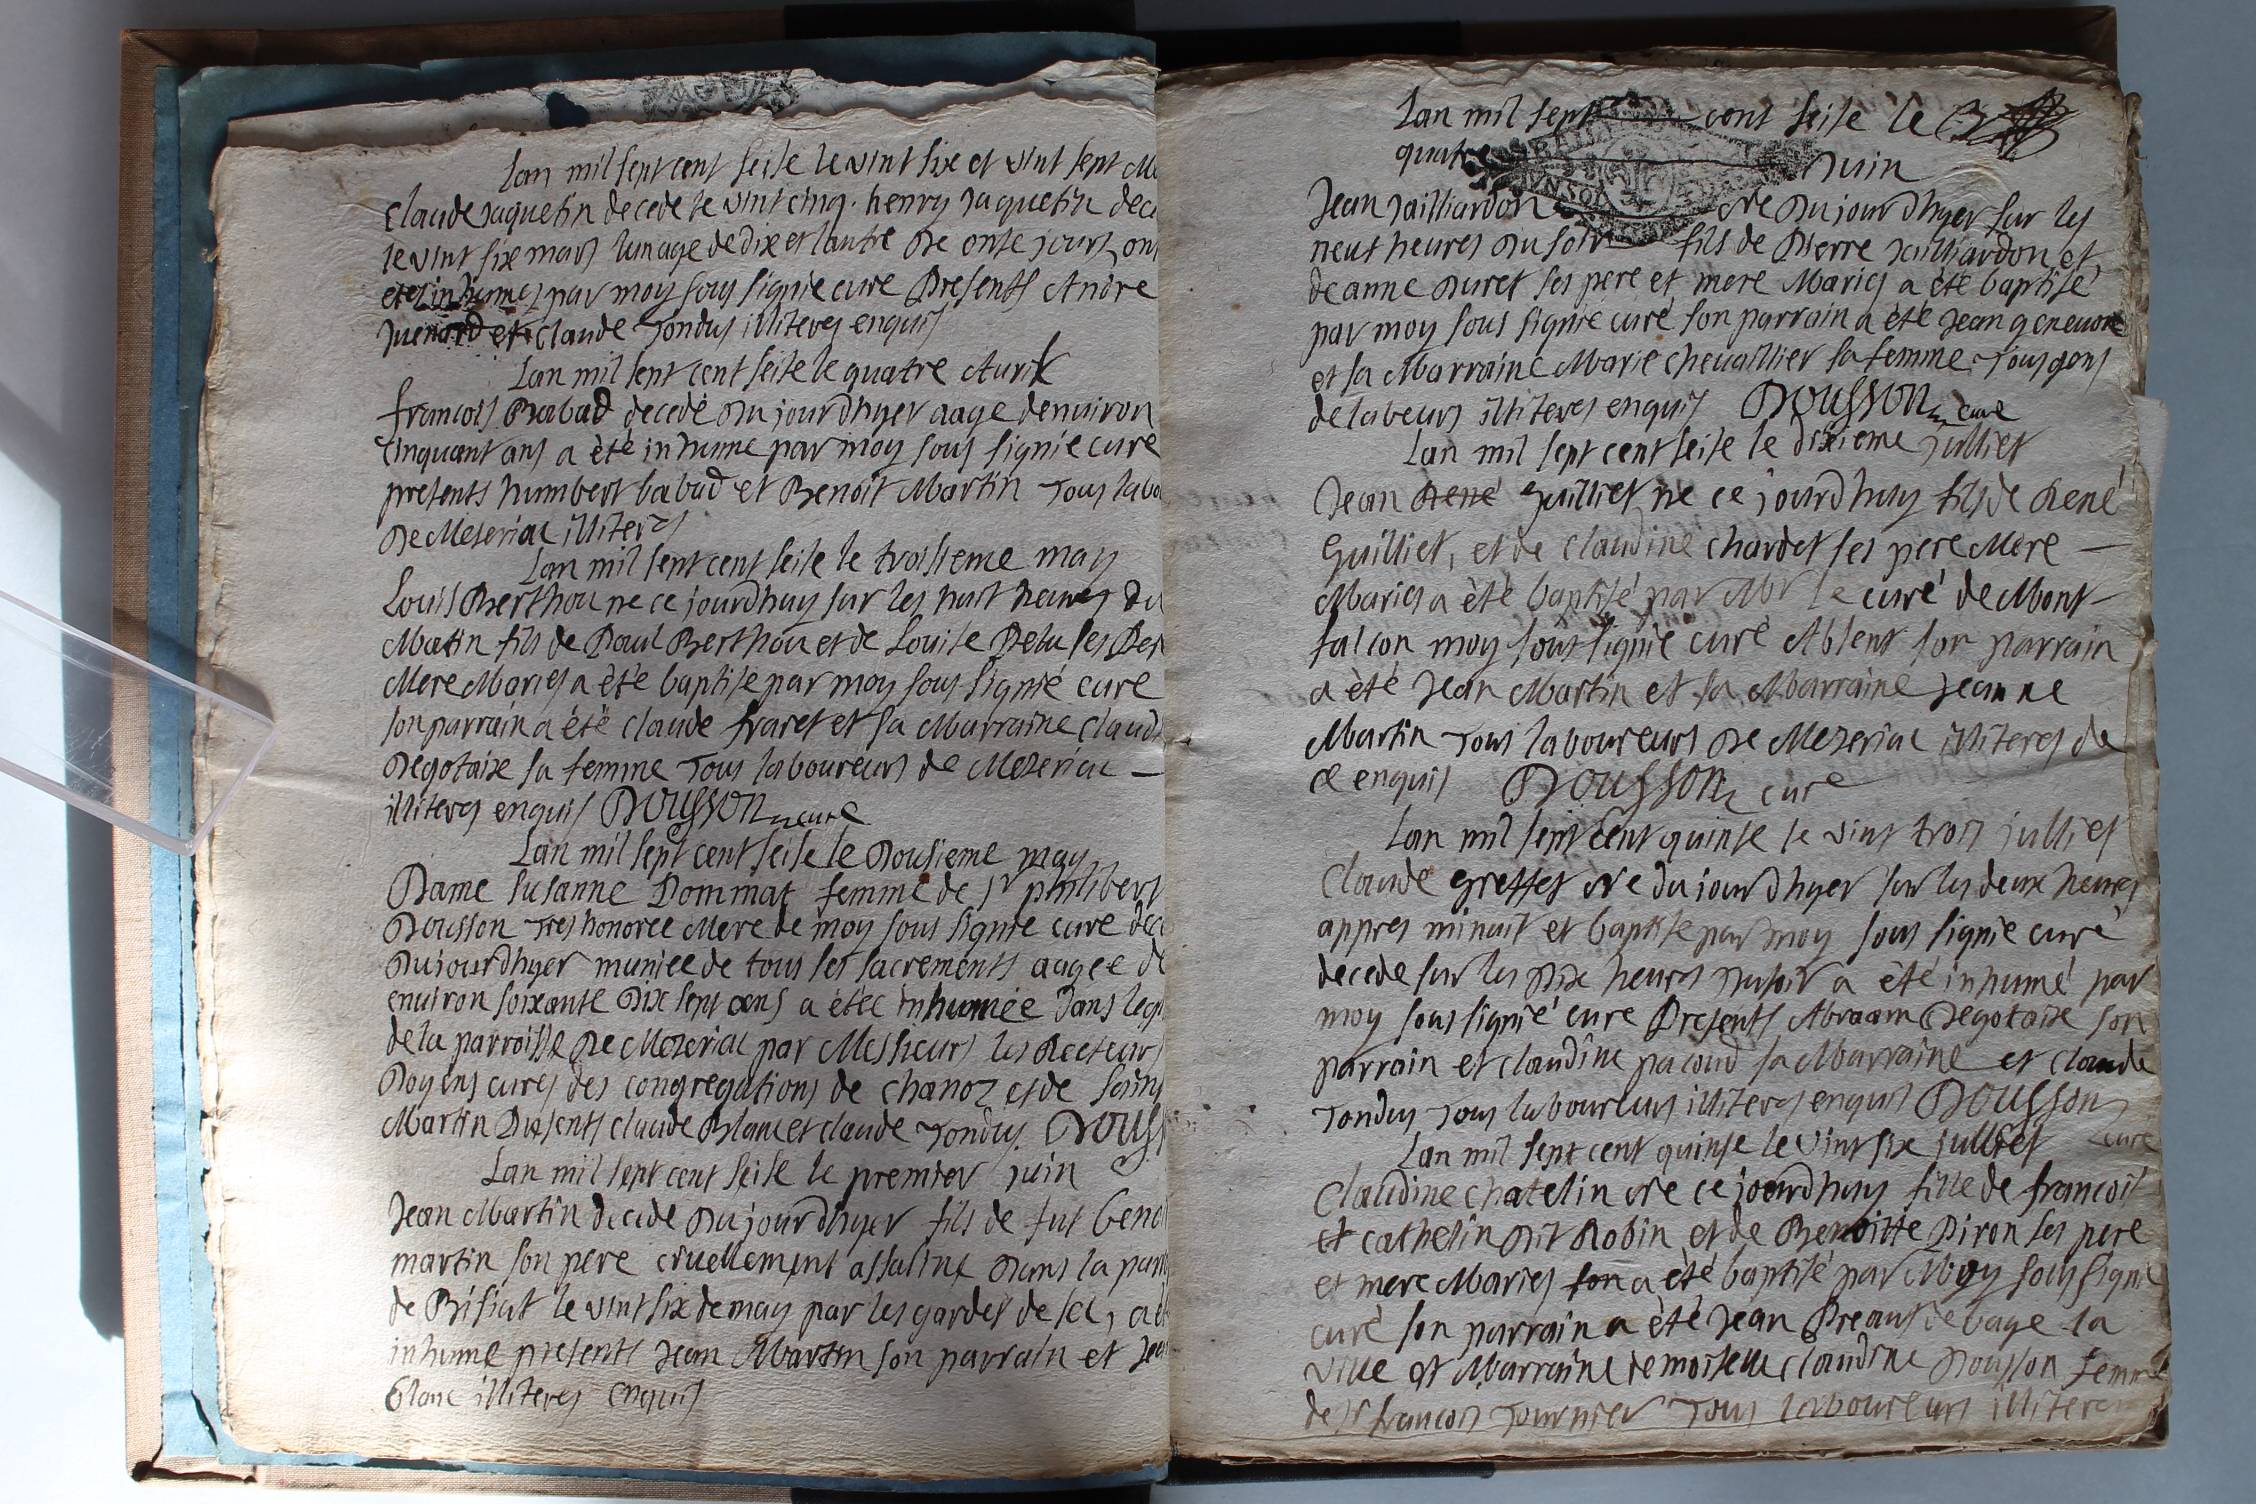 Lan mil sept cent seise le vint six et vint sept
claude Jaquetin decede le vint cinq. henry Jaquetin
le vint six mars lun age de dix et lautre de onse jours ont
etes inhumes par moy sous signie cure Presents Andre
Juenard et claude Tondus illiteres enquis
Lan mil sept cent seise le quatre Auril
francois Babad decedé du jourdhyer aage denuiron
cinquant ans a èté inhume par moy sous signie cure
presents humbert babad et Benoit Martin Tous
De Meseriac illiteres
Lan mil sept cent seise le troisieme may
Louis Berthou ne ce jourdhuy sur les huit heures du
Matin fils de Paul Berthou et de Louise Pelu ses
Mere Maries a èté baptise par moy sous signié curé
son parrain a été claude fraret et sa Marraine
Degotaix sa femme Tous laboureurs de Meseriac —
illiteres enquis Dousson cure
Lan mil sept cent seise le Dousieme may
Dame Susanne Dommat femme de Sr philibert
Dousson Tres honorée Mere de moy sous signie cure
Dujourdhyer muniee de tous ses sacrements aagee de
enuiron soixante Dix sept ans a étée inhumée Dans
de la parroisse De Meseriac par Messieurs les Recteurs
Doyens cures des congregations de chanoz et de saint
Martin Presents claude Blanc et claude Tondus
Lan mil sept cent seise le premier juin
Jean Martin decede Dujourdhyer fils de fut
martin son pere cruellement assasine Dans la
de Bisiat le vint six de may par les gardes de sel,
inhume presents Jean Martin son parrain et
blanc illiteres enquis
Lan mil sept cent seise le
quatre Juin
Jean Jailliardon Ne Dujourdhyer sur les
neuf heures Du soir fils de Pierre Jailliardon et
de anne Duret ses pere et mere Maries a èté baptisé
par moy sous signie curé son parrain a èté Jean
et sa Marraine Marie cheuaillier sa femme Tous gens
de labeurs illiteres enquis Dousson cure
Lan mil sept cent seise le dixieme julliet
Jean René Guilliet ne ce jourdhuy fils de René
Guilliet, et de claudine chardet ses pere Mere —
Maries a èté baptisé par Mr le curé de Mont-
falcon moy sous signie curé Absent son parrain
a èté Jean Martin et sa Marraine Jeanne
Martin Tous laboureurs De Mezeriac illiteres de
ce enquis Dousson cure
Lan mil sept cent quinse le vint trois julliet
Claude Greffet Ne du jourdhyer sur les deux heures
appres minuit et baptise par moy sous signie curé
decede sur les Dix heures Du soir a èté inhumé par
moy sous signié cure Presents Abraam Degotaix son
parrain et claudine pacoud sa Marraine et claude
Tondus Tous laboureurs illiteres enquis Dousson
cure
Lan mil sept cent quinse le vint six julliet
Claudine chatelin Ne ce jourdhuy fille de francois
et cathelin Dit Robin et de Benoitte Piron ses pere
et mere Maries son a été baptisé par Moy sous signie
curé son parrain a èté Jean de bage la
ville et Marraine demoiselle claudine Dousson femme
de Sr francois Tournier Tous laboureurs illiteres